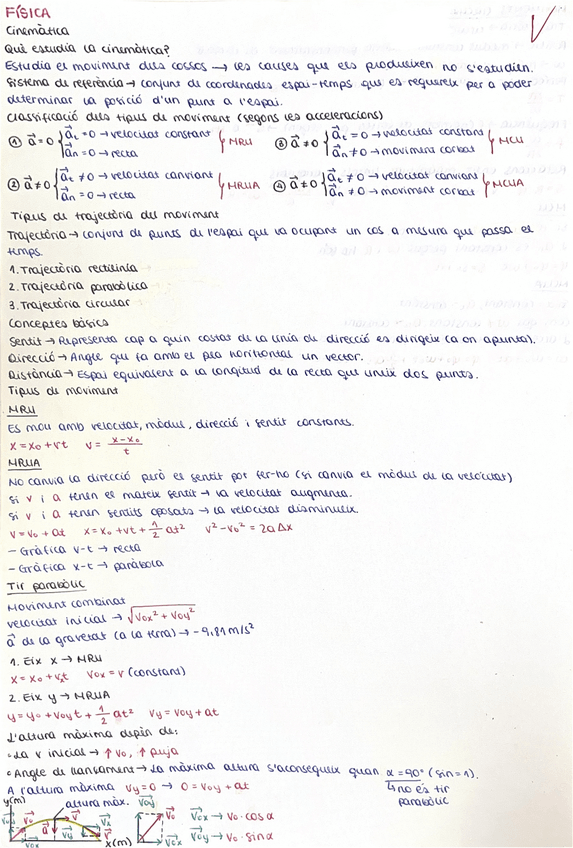 FÍSICA
Cinemàtica
Què estudia la cinemàtica?
Estudia el moviment dels cossos → les causes que els produeixen no s'estudien.
Sistema de referència → conjunt de coordenades espai-temps que es requereix per a poder
determinar la posició d'un punt a l'espai.
Classificació dels tipus de moviment (segons les acceleracions)
① a⃗ = 0 { a⃗t = 0 → velocitat constant } MRU
a⃗n = 0 → recta
③ a⃗ ≠ 0 { a⃗t = 0 → velocitat constant } MCU
a⃗n ≠ 0 → moviment corbat
② a⃗ ≠ 0 { a⃗t ≠ 0 → velocitat canviant } MRUA
a⃗n = 0 → recta
④ a⃗ ≠ 0 { a⃗t ≠ 0 → velocitat canviant } MCUA
a⃗n ≠ 0 → moviment corbat
Tipus de trajectòria del moviment
Trajectòria → conjunt de punts de l'espai que va ocupant un cos a mesura que passa el
temps.
1. Trajectòria rectilínia
2. Trajectòria parabòlica
3. Trajectòria circular
Conceptes bàsics
Sentit → Representa cap a quin costat de la línia de direcció es dirigeix (a on apunta).
Direcció → Angle que fa amb el pla horitzontal un vector.
Distància → Espai equivalent a la longitud de la recta que uneix dos punts.
Tipus de moviment
MRU
Es mou amb velocitat, mòdul, direcció i sentit constants.
x = x₀ + vt   v = (x-x₀)/t
MRUA
No canvia la direcció però el sentit pot fer-ho (si canvia el mòdul de la velocitat)
Si v i a tenen el mateix sentit → la velocitat augmenta.
Si v i a tenen sentits oposats → la velocitat disminueix.
v = v₀ + at   x = x₀ + vt + 1/2 at²   v² - v₀² = 2aΔx
- Gràfica v-t → recta
- Gràfica x-t → paràbola
Tir parabòlic
Moviment combinat
velocitat inicial → √(v₀x² + v₀y²)
a⃗ de la gravetat (a la terra) → -9,81 m/s²
1. Eix x → MRU
x = x₀ + vxt   v₀x = v (constant)
2. Eix y → MRUA
y = y₀ + v₀yt + 1/2 at²   vy = v₀y + at
L'altura màxima depèn de:
◦ La v inicial → ↑ v₀, ↑ puja
◦ Angle de llançament → La màxima altura s'aconsegueix quan α = 90° (sin = 1).
↳ no és tir
parabòlic
A l'altura màxima vy = 0 → 0 = v₀y + at
y(m)
altura màx.
v⃗₀y
v⃗₀
v⃗₀x
a⃗
v⃗
v⃗y
v⃗x
v⃗
x(m)
v⃗₀y
v⃗₀
v⃗₀x
v⃗₀x → v₀ · cos α
v⃗₀y → v₀ · sin α